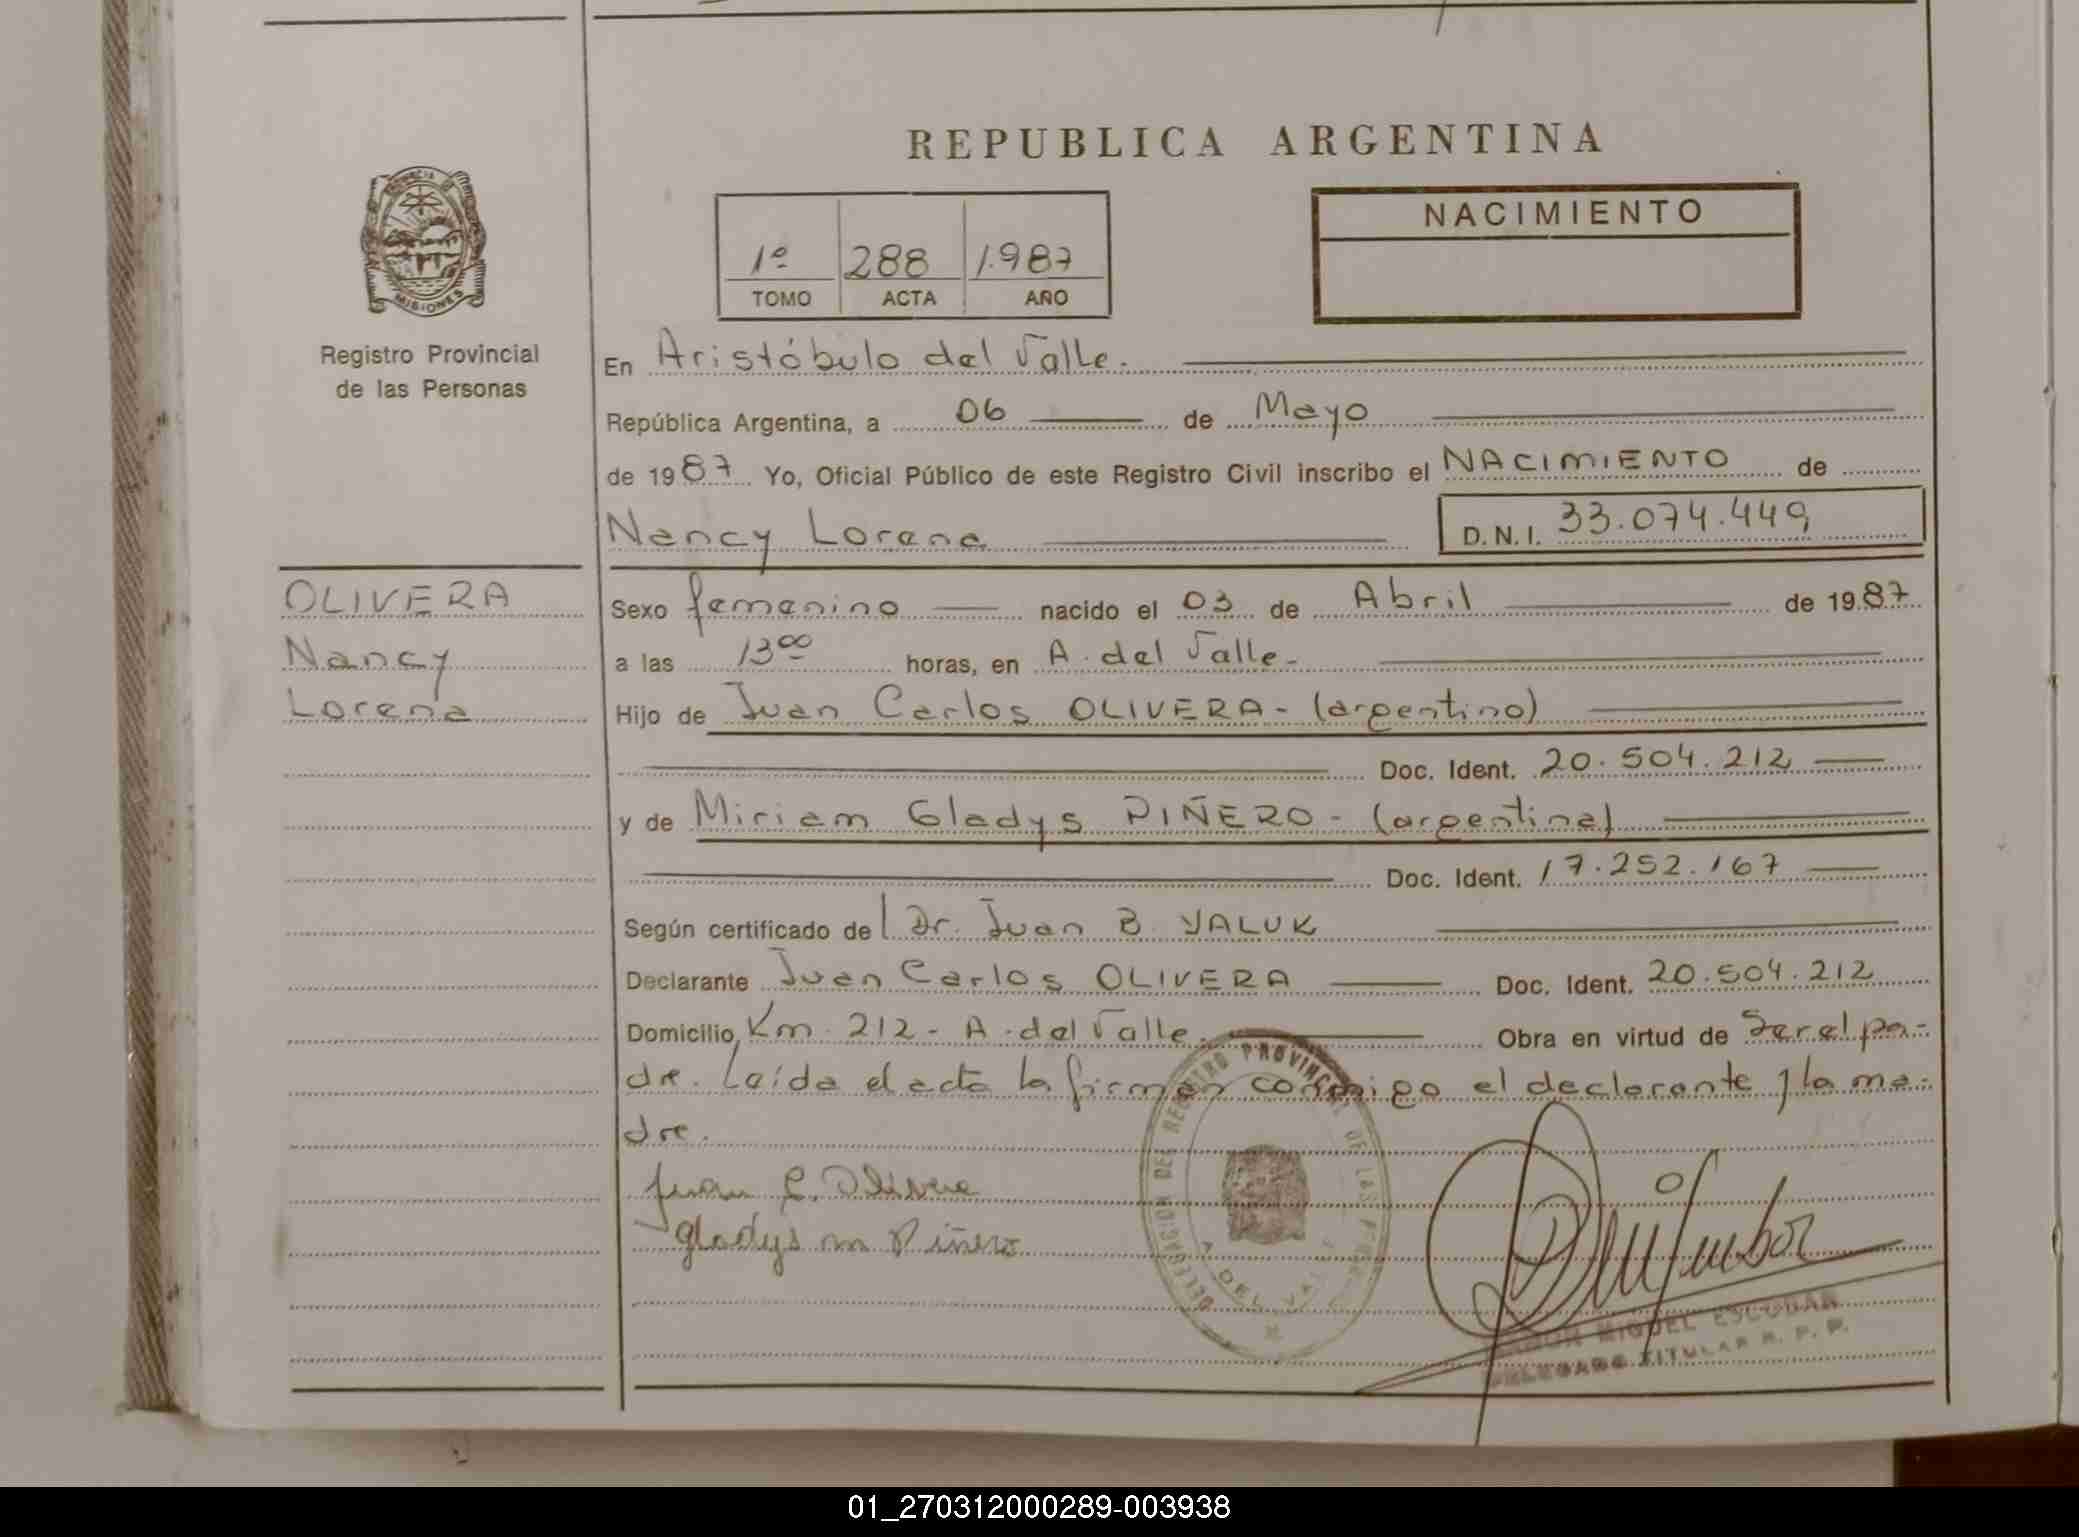 REPUBLICA ARGENTINA
PROVINCIA DE
MISIONES
Registro Provincial
de las Personas
1º 288 1.987
TOMO ACTA AÑO
NACIMIENTO
En Aristóbulo del Valle.
República Argentina, a 06 de Mayo
de 1987 Yo, Oficial Público de este Registro Civil inscribo el NACIMIENTO de
Nancy Lorena D.N.I. 33.074.449
OLIVERA
Nancy
Lorena
Sexo femenino nacido el 03 de Abril de 1987
a las 13⁰⁰ horas, en A. del Valle-
Hijo de Juan Carlos OLIVERA- (argentino)
Doc. Ident. 20.504.212
y de Miriam Gladys PIÑERO- (argentina)
Doc. Ident. 17.252.167
Según certificado del Dr. Juan B. YALUK
Declarante Juan Carlos OLIVERA Doc. Ident. 20.504.212
Domicilio Km. 212- A. del Valle. Obra en virtud de Ser el pa-
dre. Leída el acta la firman conmigo el declarante y la ma-
dre.
Juan C. Olivera
gladys m Piñero
DELEGACION DEL REGISTRO PROVINCIAL DE LAS
A DEL VALLE
MIGUEL ESCOBAR
DELEGADO TITULAR R. P. P.
01_270312000289-003938